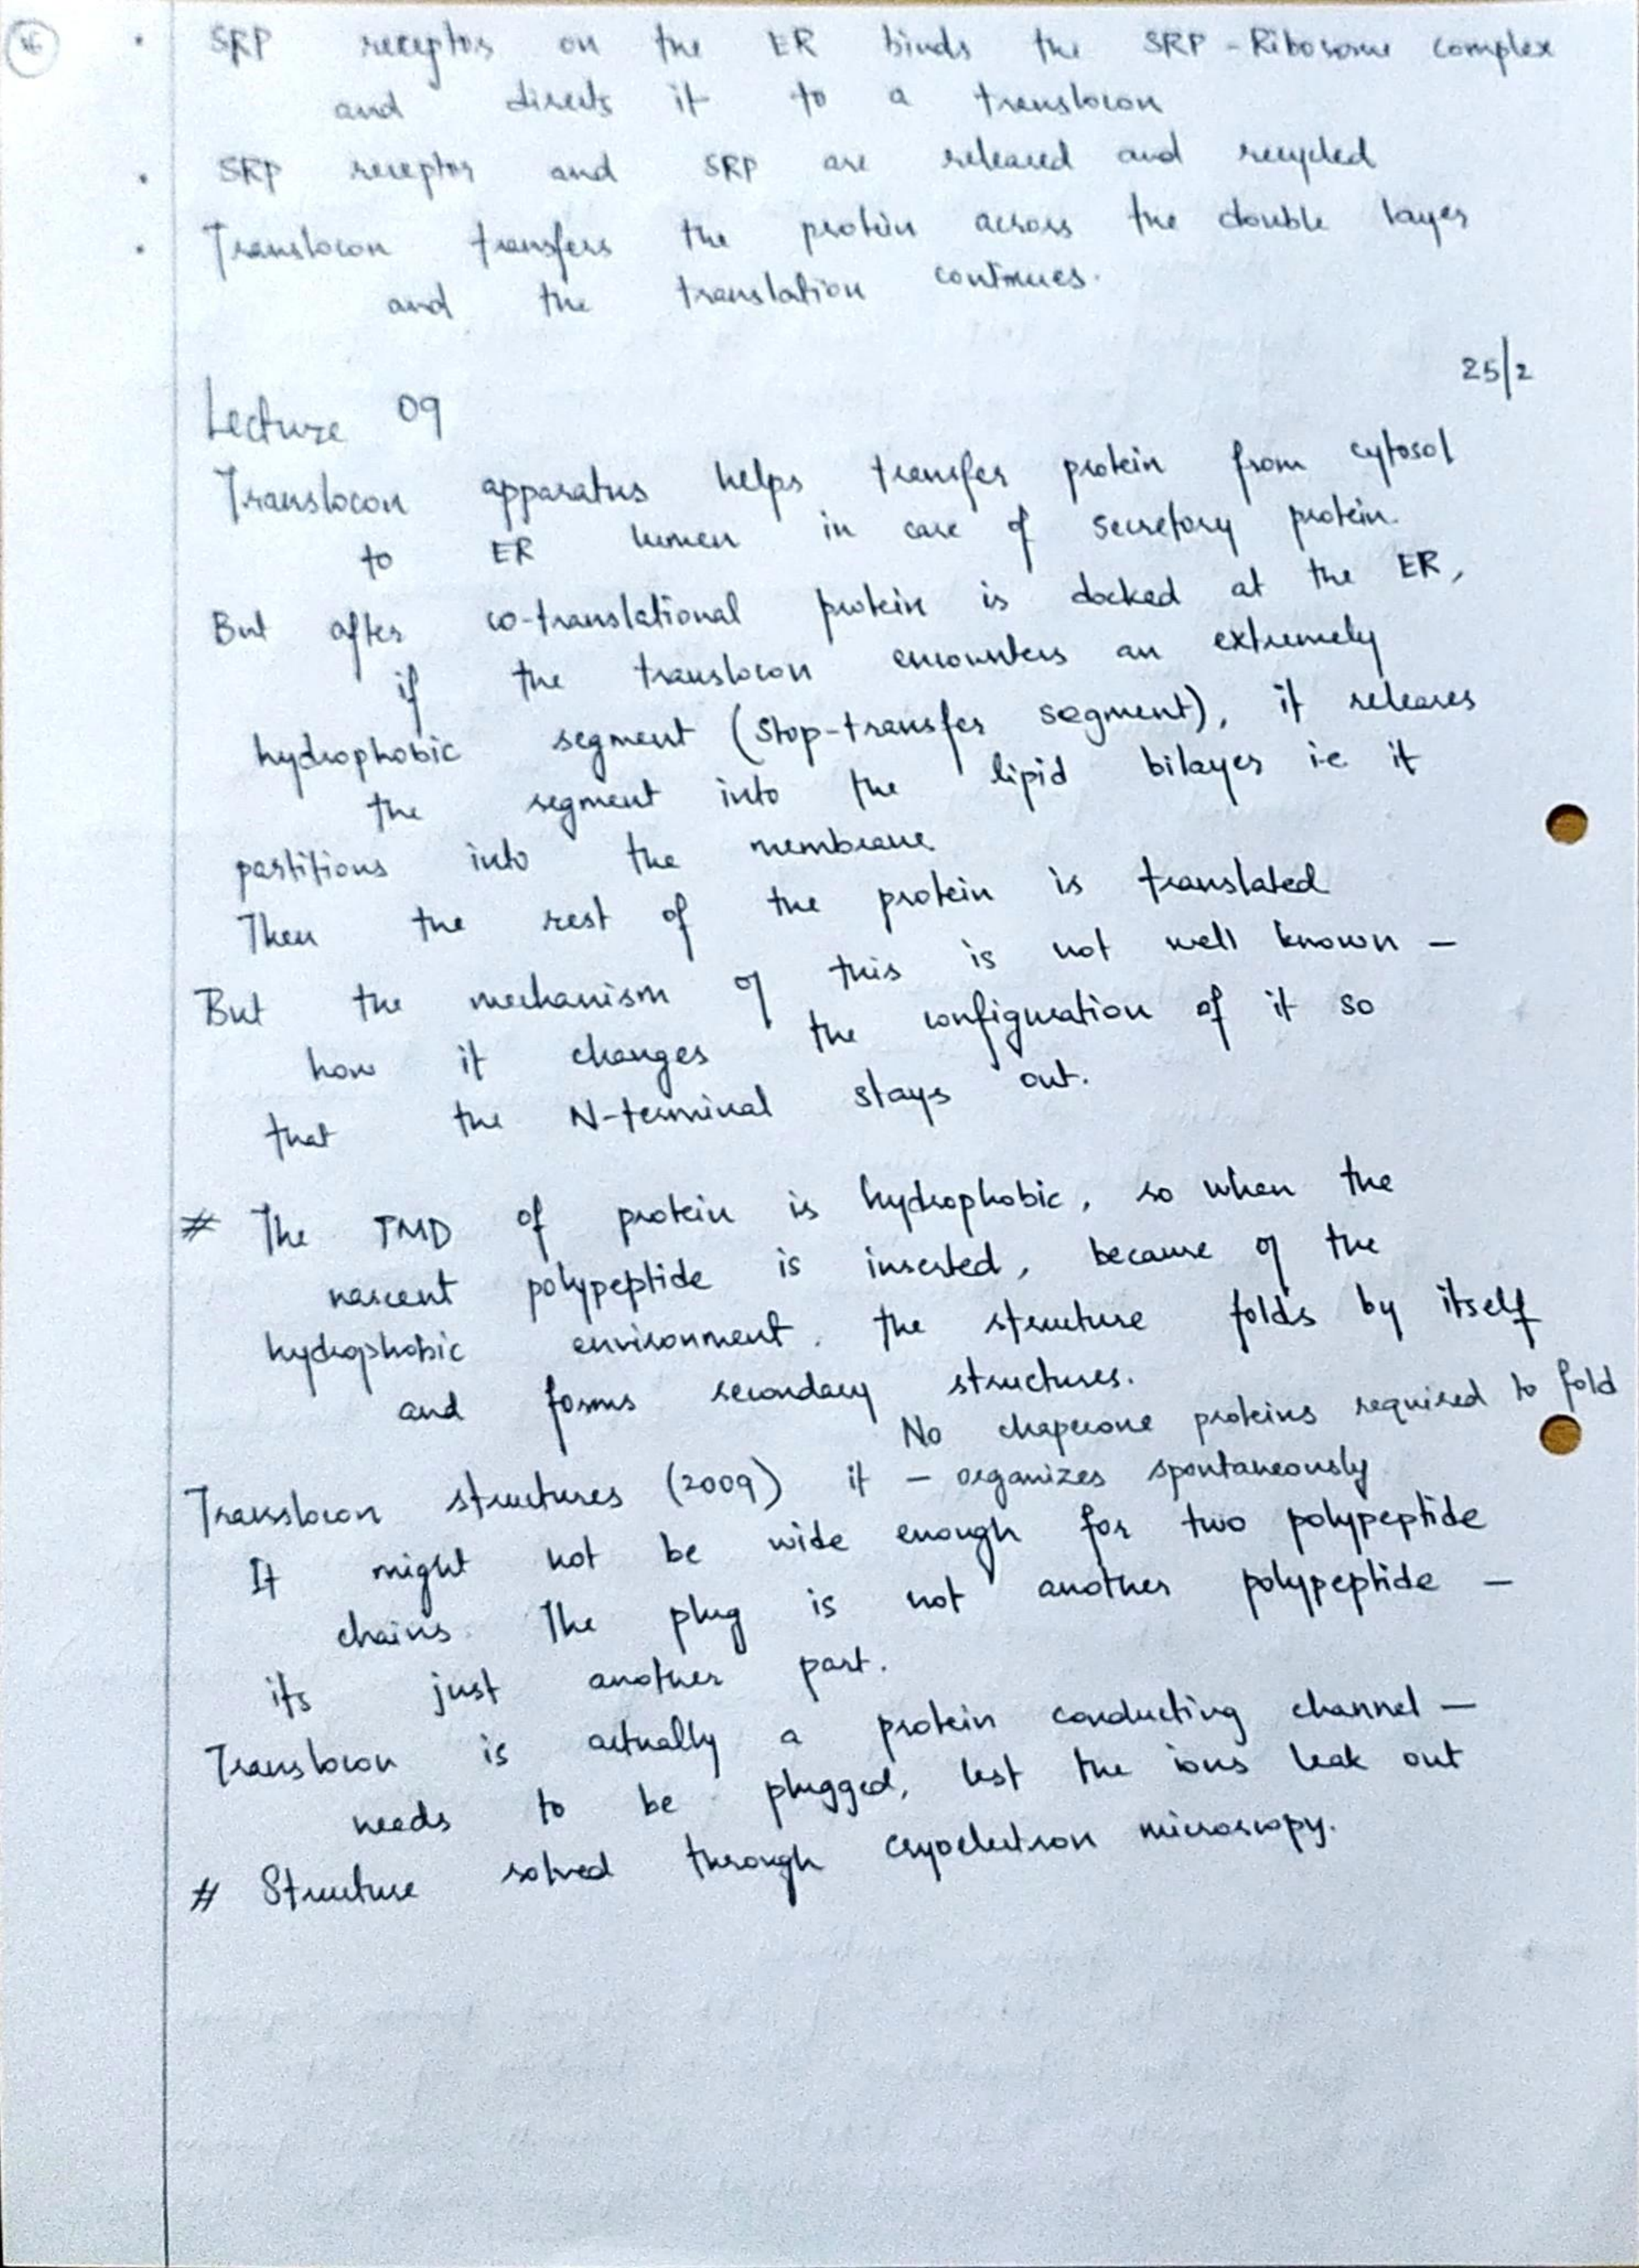 • SRP receptor on the ER binds the SRP-Ribosome complex
and directs it to a translocon
• SRP receptor and SRP are released and recycled
• Translocon transfers the protein across the double layer
and the translation continues.
25/2
Lecture 09
Translocon apparatus helps transfer protein from cytosol
to ER lumen in case of secretory protein.
But after co-translational protein is docked at the ER,
if the translocon encounters an extremely
hydrophobic segment (Stop-transfer segment), it releases
the segment into the lipid bilayer i.e it
partitions into the membrane
Then the rest of the protein is translated
But the mechanism of this is not well known -
how it changes the configuration of it so
that the N-terminal stays out.
# The TMD of protein is hydrophobic, so when the
nascent polypeptide is inserted, because of the
hydrophobic environment, the structure folds by itself
and forms secondary structures.
No chaperone proteins required to fold
it - organizes spontaneously
Translocon structures (2009)
It might not be wide enough for two polypeptide
chains. The plug is not another polypeptide -
its just another part.
Translocon is actually a protein conducting channel -
needs to be plugged, lest the ions leak out
# Structure solved through cryoelectron microscopy.